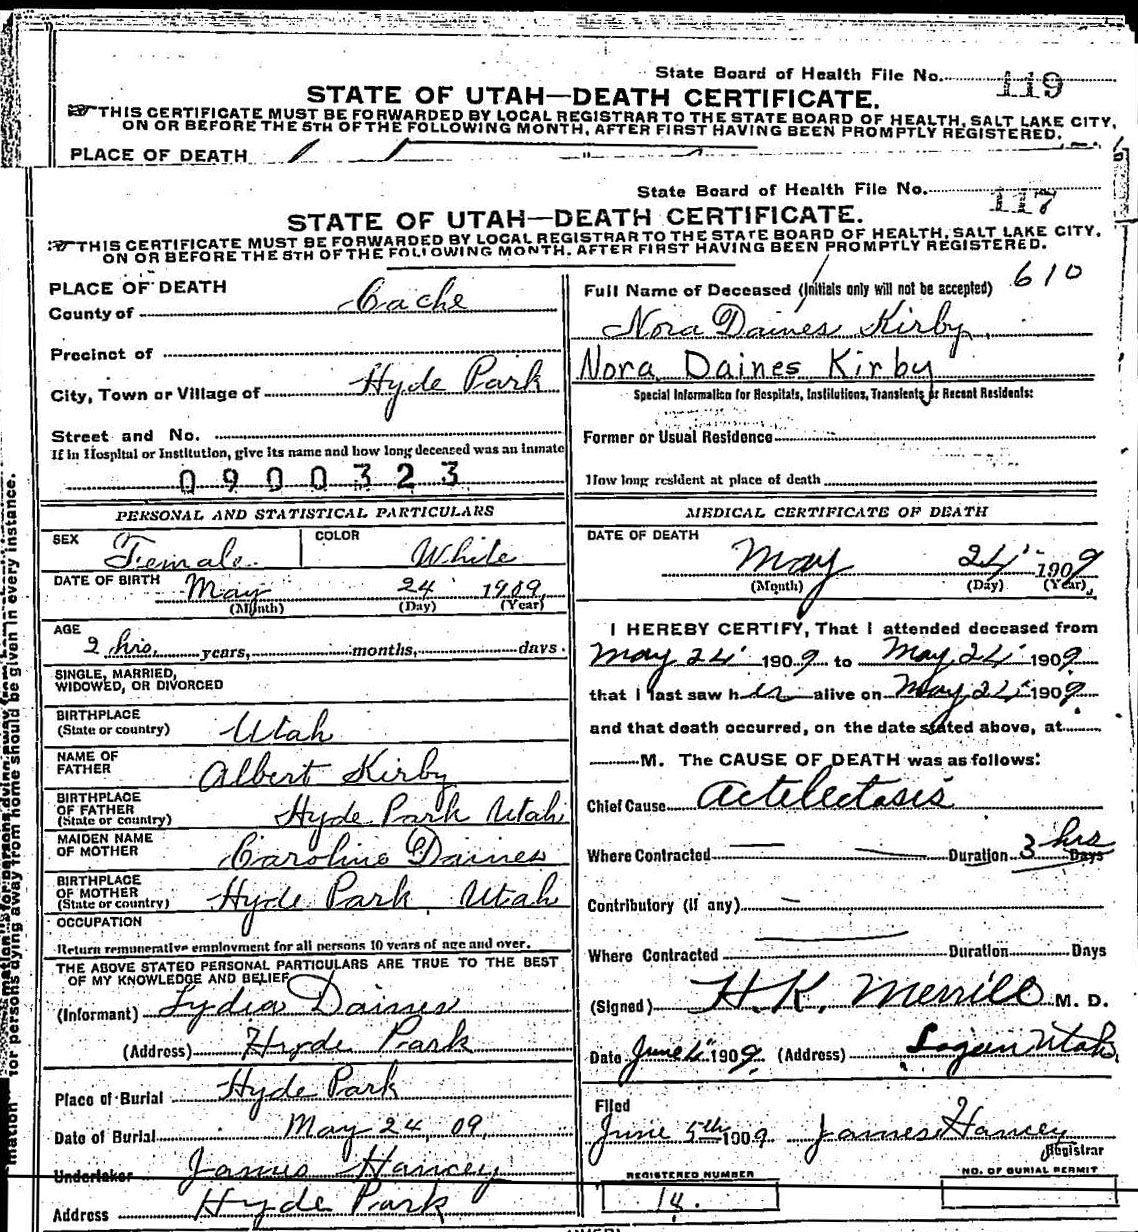 State Board of Health File No. 119
STATE OF UTAH—DEATH CERTIFICATE.
THIS CERTIFICATE MUST BE FORWARDED BY LOCAL REGISTRAR TO THE STATE BOARD OF HEALTH, SALT LAKE CITY,
ON OR BEFORE THE 5TH OF THE FOLLOWING MONTH, AFTER FIRST HAVING BEEN PROMPTLY REGISTERED.
PLACE OF DEATH
State Board of Health File No. 117
STATE OF UTAH—DEATH CERTIFICATE.
THIS CERTIFICATE MUST BE FORWARDED BY LOCAL REGISTRAR TO THE STATE BOARD OF HEALTH, SALT LAKE CITY,
ON OR BEFORE THE 5TH OF THE FOLLOWING MONTH, AFTER FIRST HAVING BEEN PROMPTLY REGISTERED.
PLACE OF DEATH
County of Cache
Precinct of
City, Town or Village of Hyde Park
Street and No.
If in Hospital or Institution, give its name and how long deceased was an inmate
0 9 0 0 3 2 3
610
Full Name of Deceased (Initials only will not be accepted)
Nora Daines Kirby
Nora Daines Kirby
Special Information for Hospitals, Institutions, Transients or Recent Residents:
Former or Usual Residence
How long resident at place of death
PERSONAL AND STATISTICAL PARTICULARS
SEX Female COLOR White
DATE OF BIRTH May 24 1909
(Month) (Day) (Year)
AGE
2 hrs. years, months, days.
SINGLE, MARRIED,
WIDOWED, OR DIVORCED
BIRTHPLACE
(State or country) Utah
NAME OF
FATHER Albert Kirby
BIRTHPLACE
OF FATHER
(State or country) Hyde Park Utah
MAIDEN NAME
OF MOTHER Caroline Daines
BIRTHPLACE
OF MOTHER
(State or country) Hyde Park, Utah
OCCUPATION
Return remunerative employment for all persons 10 years of age and over.
THE ABOVE STATED PERSONAL PARTICULARS ARE TRUE TO THE BEST
OF MY KNOWLEDGE AND BELIEF
(Informant) Lydia Daines
(Address) Hyde Park
Place of Burial Hyde Park
Date of Burial May 24, 09.
Undertaker James Hancey
Address Hyde Park
MEDICAL CERTIFICATE OF DEATH
DATE OF DEATH
May 24 1909
(Month) (Day) (Year)
I HEREBY CERTIFY, That I attended deceased from
May 24 1909 to May 24 1909
that I last saw her alive on May 24 1909
and that death occurred, on the date stated above, at
M. The CAUSE OF DEATH was as follows:
Chief Cause Actelectasis
Where Contracted — — Duration 3 hrs Days
Contributory (if any) —
Where Contracted Duration Days
(Signed) H. K. Merrill M. D.
Date June 4 1909 (Address) Logan Utah
Filed
June 5th 1909 James Hancey
Registrar
REGISTERED NUMBER
14.
NO. OF BURIAL PERMIT
for persons dying away from home should be given in every instance.